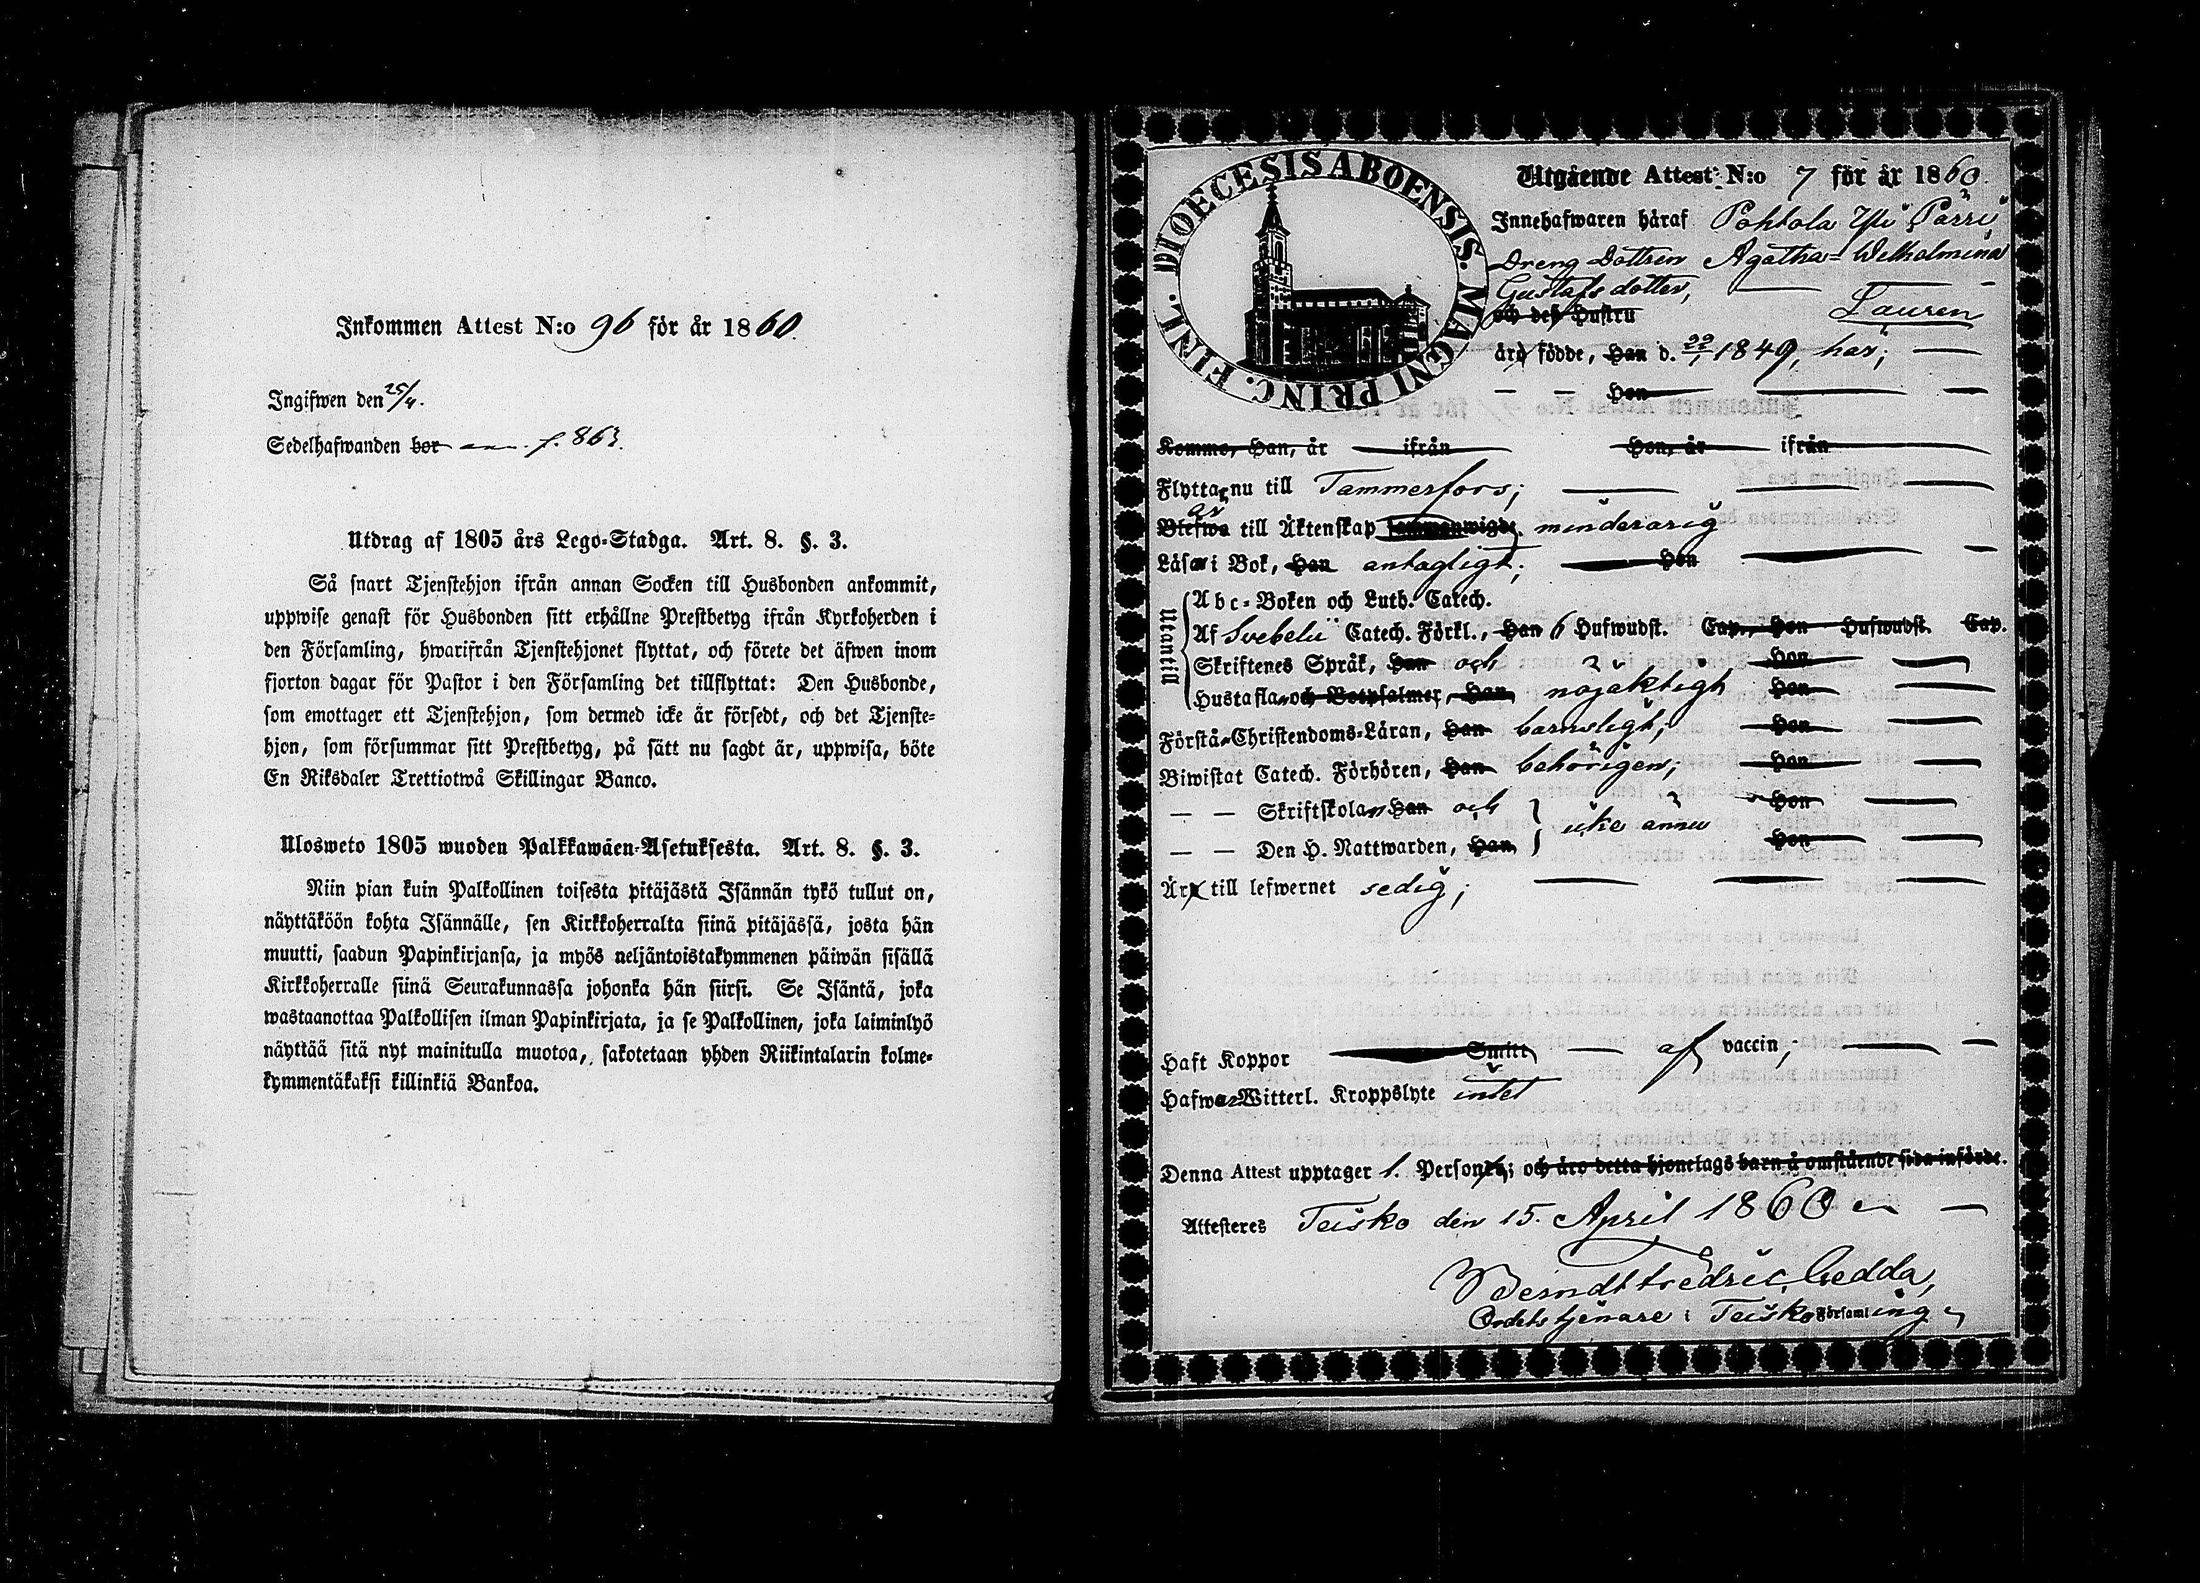 Inkommen Attest N:o 96 för år 1860.
Ingifwen den 25/4.
Sedelhafwanden bor f. 863.
Utdrag af 1805 års Lego-Stadga. Art. 8. §. 3.
Så snart Tjenstehjon ifrån annan Socken till Husbonden ankommit,
uppwise genast för Husbonden sitt erhållne Prestbetyg ifrån Kyrkoherden i
den Församling, hwarifrån Tjenstehjonet flyttat, och förete det äfwen inom
fjorton dagar för Pastor i den Församling det tillflyttat: Den Husbonde,
som emottager ett Tjenstehjon, som dermed icke är försedt, och det Tjenste-
hjon, som försummar sitt Prestbetyg, på sätt nu sagdt är, uppwisa, böte
En Riksdaler Trettiotwå Skillingar Banco.
Ulosweto 1805 wuoden Palkkawäen-Asetuksesta. Art. 8. §. 3.
Niin pian kuin Palkollinen toisesta pitäjästä Isännän tykö tullut on,
näyttäköön kohta Isännälle, sen Kirkkoherralta siinä pitäjässä, josta hän
muutti, saadun Papinkirjansa, ja myös neljäntoistakymmenen päiwän sisällä
Kirkkoherralle siinä Seurakunnassa johonka hän siirsi. Se Isäntä, joka
wastaanottaa Palkollisen ilman Papinkirjata, ja se Palkollinen, joka laiminlyö
näyttää sitä nyt mainitulla muotoa, sakotetaan yhden Riikintalarin kolme-
kymmentäkaksi killinkiä Bankoa.
DIOECESIS ABOENSIS. MAGNI PRINC. FINL.
Utgående Attest N:o 7 för år 1860.
Innehafwaren häraf Pohtola Yli Pärri
Dreng Dottren Agatha Wilhelmina
Gustafs dotter,
och des Hustru Lauren
äro födde, Han d. 22/1 1849, här;
Hon
Komne, Han, år ifrån Hon, år ifrån
Flyttar nu till Tammerfors;
är
Blefwe till Äktenskap sammanwigde minderårig
Läsa i Bok, Han antagligt; Hon
Utantill
Abc-Boken och Luth. Catech.
Af Svebelii Catech. Förkl., Han 6 Hufwudst. Cap., Hon Hufwudst. Cap.
Skriftenes Språk, Han och Hon
Hustafla och Botpsalmer, Han nöjaktigt Hon
Förstå Christendoms-Läran, Han barnsligt; Hon
Biwistat Catech. Förhören, Han behörigen; Hon
— — Skriftskolan Han och Hon
icke ännu
— — Den H. Nattwarden, Han Hon
Är till lefwernet sedig;
Haft Koppor Smitt af vaccin;
Hafwer Witterl. Kroppslyte intet
Denna Attest upptager 1. Person; och äro detta hjonelags barn å omstående sida införde.
Attesteres Teisko den 15. April 1860
Berndt Fredric Gedda,
Ordets tjenare i Teisko Församling